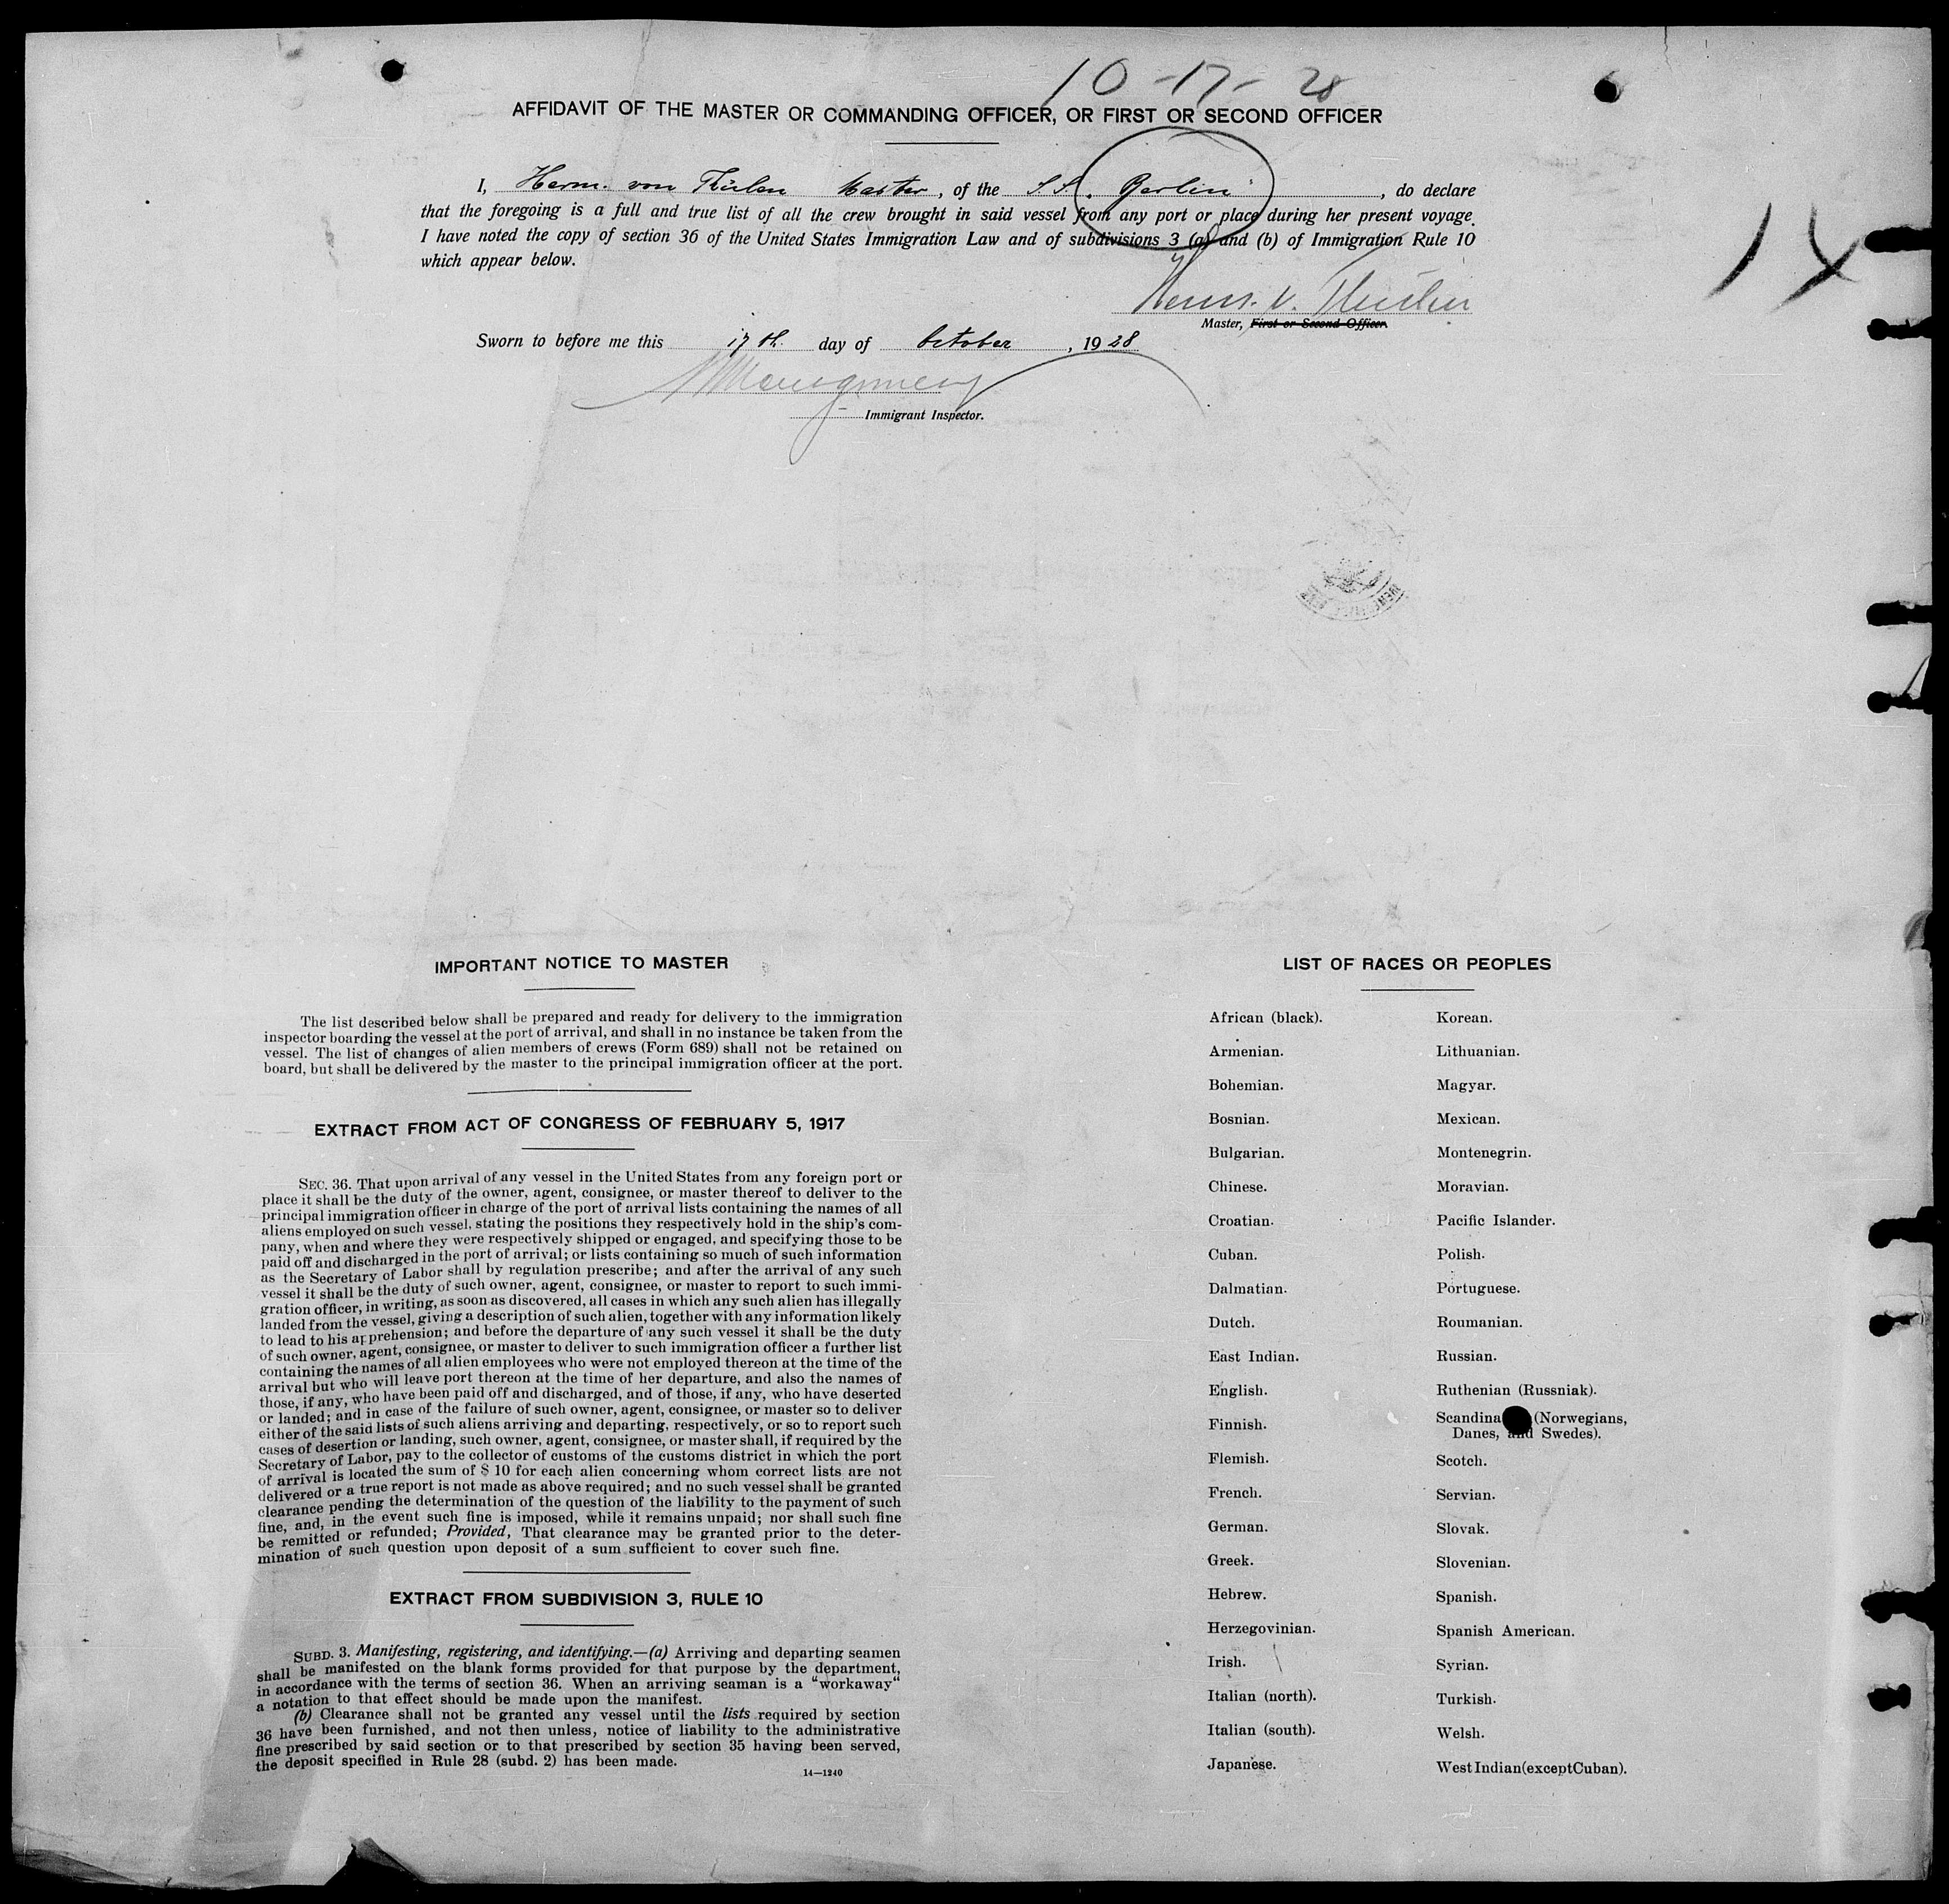 10-17-28
AFFIDAVIT OF THE MASTER OR COMMANDING OFFICER, OR FIRST OR SECOND OFFICER
I, Herm. von Thülen Master, of the S.S. Berlin, do declare
that the foregoing is a full and true list of all the crew brought in said vessel from any port or place during her present voyage.
I have noted the copy of section 36 of the United States Immigration Law and of subdivisions 3 (a) and (b) of Immigration Rule 10
which appear below.
14
Herm. v. Thülen
Master, First or Second Officer.
Sworn to before me this 17th day of October, 1928
Immigrant Inspector.
IMPORTANT NOTICE TO MASTER
The list described below shall be prepared and ready for delivery to the immigration
inspector boarding the vessel at the port of arrival, and shall in no instance be taken from the
vessel. The list of changes of alien members of crews (Form 689) shall not be retained on
board, but shall be delivered by the master to the principal immigration officer at the port.
EXTRACT FROM ACT OF CONGRESS OF FEBRUARY 5, 1917
SEC. 36. That upon arrival of any vessel in the United States from any foreign port or
place it shall be the duty of the owner, agent, consignee, or master thereof to deliver to the
principal immigration officer in charge of the port of arrival lists containing the names of all
aliens employed on such vessel, stating the positions they respectively hold in the ship's com-
pany, when and where they were respectively shipped or engaged, and specifying those to be
paid off and discharged in the port of arrival; or lists containing so much of such information
as the Secretary of Labor shall by regulation prescribe; and after the arrival of any such
vessel it shall be the duty of such owner, agent, consignee, or master to report to such immi-
gration officer, in writing, as soon as discovered, all cases in which any such alien has illegally
landed from the vessel, giving a description of such alien, together with any information likely
to lead to his apprehension; and before the departure of any such vessel it shall be the duty
of such owner, agent, consignee, or master to deliver to such immigration officer a further list
containing the names of all alien employees who were not employed thereon at the time of the
arrival but who will leave port thereon at the time of her departure, and also the names of
those, if any, who have been paid off and discharged, and of those, if any, who have deserted
or landed; and in case of the failure of such owner, agent, consignee, or master so to deliver
either of the said lists of such aliens arriving and departing, respectively, or so to report such
cases of desertion or landing, such owner, agent, consignee, or master shall, if required by the
Secretary of Labor, pay to the collector of customs of the customs district in which the port
of arrival is located the sum of $ 10 for each alien concerning whom correct lists are not
delivered or a true report is not made as above required; and no such vessel shall be granted
clearance pending the determination of the question of the liability to the payment of such
fine, and, in the event such fine is imposed, while it remains unpaid; nor shall such fine
be remitted or refunded; Provided, That clearance may be granted prior to the deter-
mination of such question upon deposit of a sum sufficient to cover such fine.
EXTRACT FROM SUBDIVISION 3, RULE 10
SUBD. 3. Manifesting, registering, and identifying.—(a) Arriving and departing seamen
shall be manifested on the blank forms provided for that purpose by the department,
in accordance with the terms of section 36. When an arriving seaman is a "workaway"
a notation to that effect should be made upon the manifest.
(b) Clearance shall not be granted any vessel until the lists required by section
36 have been furnished, and not then unless, notice of liability to the administrative
fine prescribed by said section or to that prescribed by section 35 having been served,
the deposit specified in Rule 28 (subd. 2) has been made.
14—1240
LIST OF RACES OR PEOPLES
African (black).
Armenian.
Bohemian.
Bosnian.
Bulgarian.
Chinese.
Croatian.
Cuban.
Dalmatian.
Dutch.
East Indian.
English.
Finnish.
Flemish.
French.
German.
Greek.
Hebrew.
Herzegovinian.
Irish.
Italian (north).
Italian (south).
Japanese.
Korean.
Lithuanian.
Magyar.
Mexican.
Montenegrin.
Moravian.
Pacific Islander.
Polish.
Portuguese.
Roumanian.
Russian.
Ruthenian (Russniak).
Scandina (Norwegians,
Danes, and Swedes).
Scotch.
Servian.
Slovak.
Slovenian.
Spanish.
Spanish American.
Syrian.
Turkish.
Welsh.
West Indian (except Cuban).